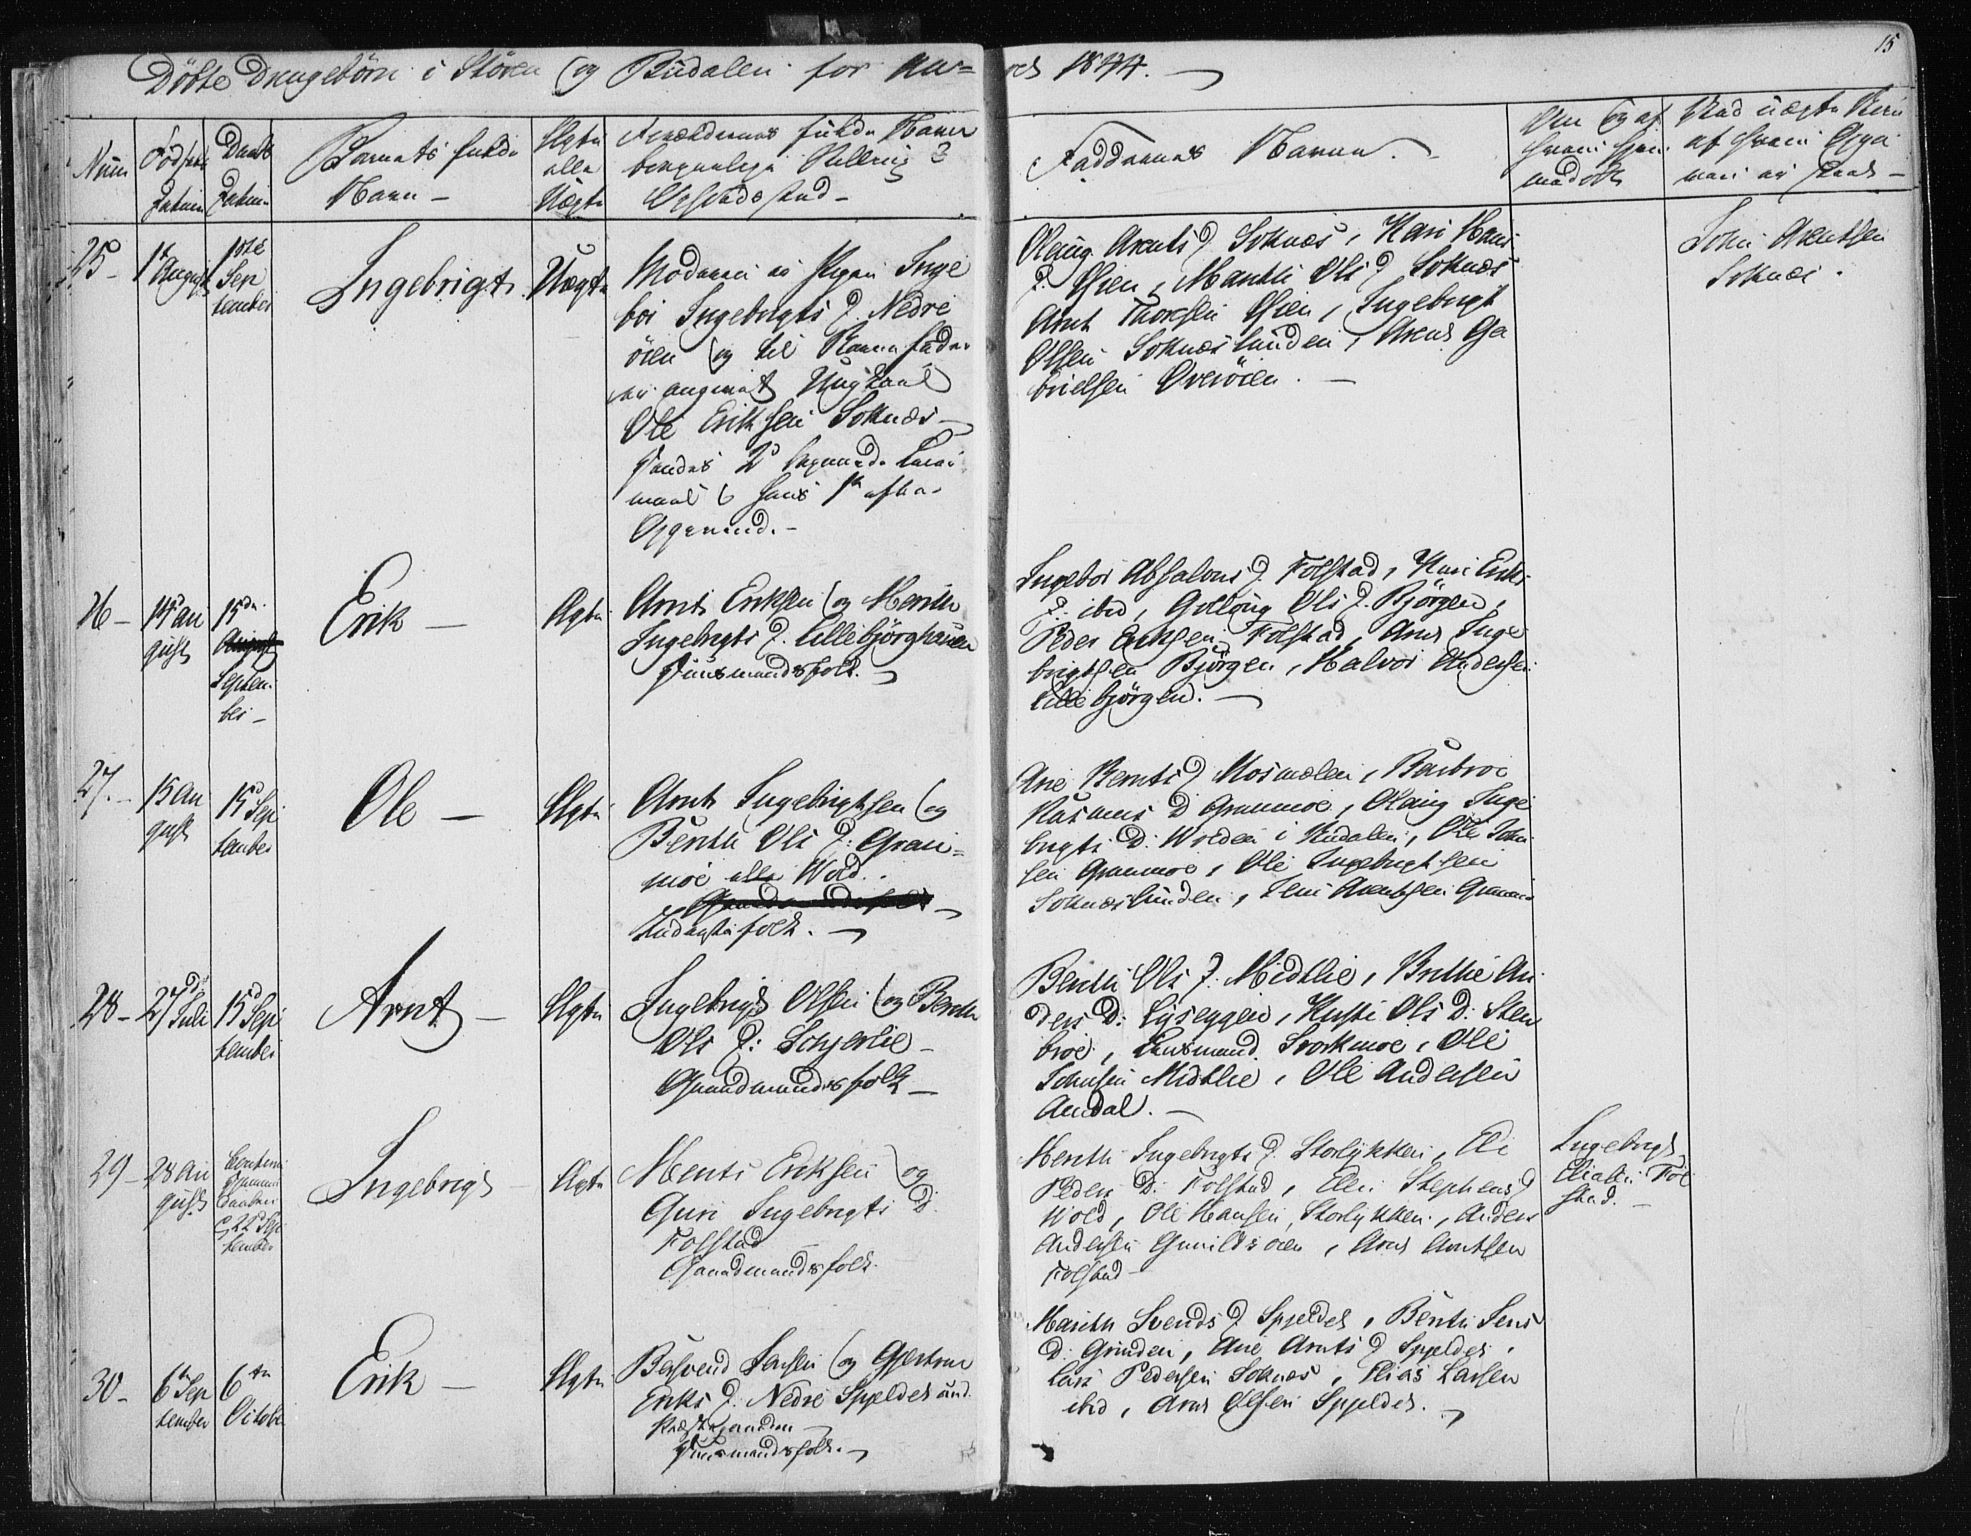 15
Döbte Drengebörn i Stören og Budalen for Aa=
ret 1844.
Num
Födsels
Datum
Daabs
Datum
Barnets fulde
Navn —
Ægte
eller
Uægte
Forældrenes fulde Navn
Opholdssted —
Faddernes Navne.
25 —
1 August
1ste
Sep
tember
Ingebrigt
Uægte
Moderen er Pigen Inge
bor Ingebrigts D. Nedre
öien og til Barnefader
er angivet Ungkarl
Ole Eriksen Soknæs —
Olaug Arnts D. Soknæs, Kari Hans
D. Öien, Marith Ols D. Soknæs
Arnt Thoresen Öien, Ingebrigt
Olsen Soknæslunden, Arnt Ga
brielsen Overöien. —
John Arentsen
Soknæs.
26 —
14 Au
gust
15de
August
Septem
ber —
Erik —
Ægte
Arnt Eriksen og Marith
Ingebrigts D. Lillebjörghaugen
Huusmandsfolk. —
Ingebor Absalons D. Folstad, Kari Eriks
D. ibid, Gollaug Ols D. Björgen,
Peder Eriksen Folstad, Arnt Inge
brigtsen Björgen, Halvor Andersen
Lillebjörgen. —
27. —
15 Au
gust
15 Sep
tember
Ole —
Ægte
Arnt Ingebrigtsen og
Berith Ols D: Gran=
moe eller Wold.
Inderstfolk. —
Ane Bernts D Mosmelen, Barbroe
Rasmus D Granmoe, Olaug Inge
brigts D. Wolden i Budalen, Ole John
sen Granmoe, Ole Ingebrigtsen
Soknæslunden, Jens Arentsen Granmoe
28 —
27 Juli
15d Sep
tember
Arnt —
Ægte
Ingebrigt Olsen og Berith
Ols D: Schjerlie —
Gaardmandsfolk —
Berith Ols D: Midtlie, Brithe An
ders D: Lyseggen, Kirsti Ols D: Sten
broe, Svorkmoe, Ole
Johnsen Midtlie, Ole Andersen
Aundal. —
29 —
28 Au
gust
Confirm
Daaben
22d Sep
tember
Ingebrigt
Ægte
Ments Eriksen og
Guri Ingebrigts D:
Folstad —
Gaardmandsfolk.
Marith Ingebrigts D. Storlykken, Eli
Peders D: Folstad, Ellen Stephens D
Wold, Ole Hansen Storlykken, Anders
Andersen Gunildsöien, Arnt Arntsen
Folstad —
Ingebrigt
Eliasen Fol
stad. —
30 —
6te Sep
tember
6te
Octobr
Erik —
Ægte
Bersvend Jensen og Gjertrue
Eriks D. Nedre Spjeldet und.
Præstegaarden
Huusmandsfolk. —
Marith Svends D Spjeldet, Berith Jens
D. Grinden, Ane Arnts D Spjeldet,
Lars Pedersen Soknæs, Elias Larsen
ibid, Arnt Olsen Spjeldet. —